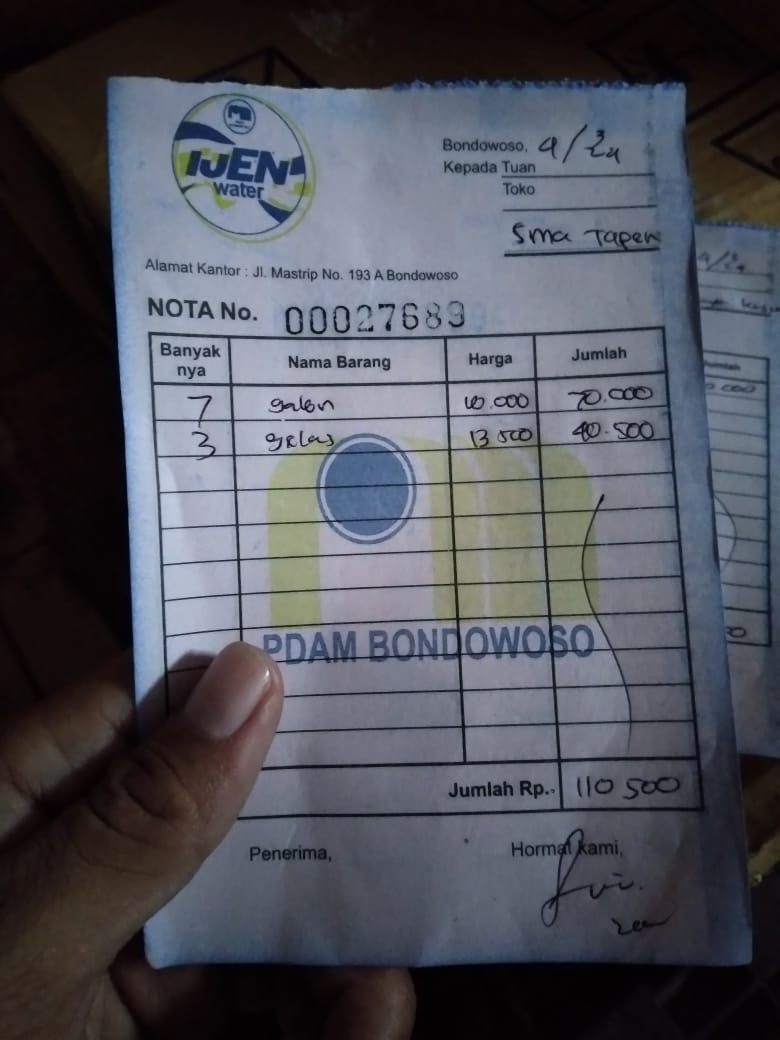 IJEN
water
Bondowoso, 9/24
Kepada Tuan
Toko
Sma Tapen
Alamat Kantor : Jl. Mastrip No. 193 A Bondowoso
NOTA No. 00027689
Banyak nya Nama Barang Harga Jumlah
7 galon 10.000 70.000
3 gelas 13 500 40.500
PDAM BONDOWOSO
Jumlah Rp.. 110 500
Penerima, Hormat kami,